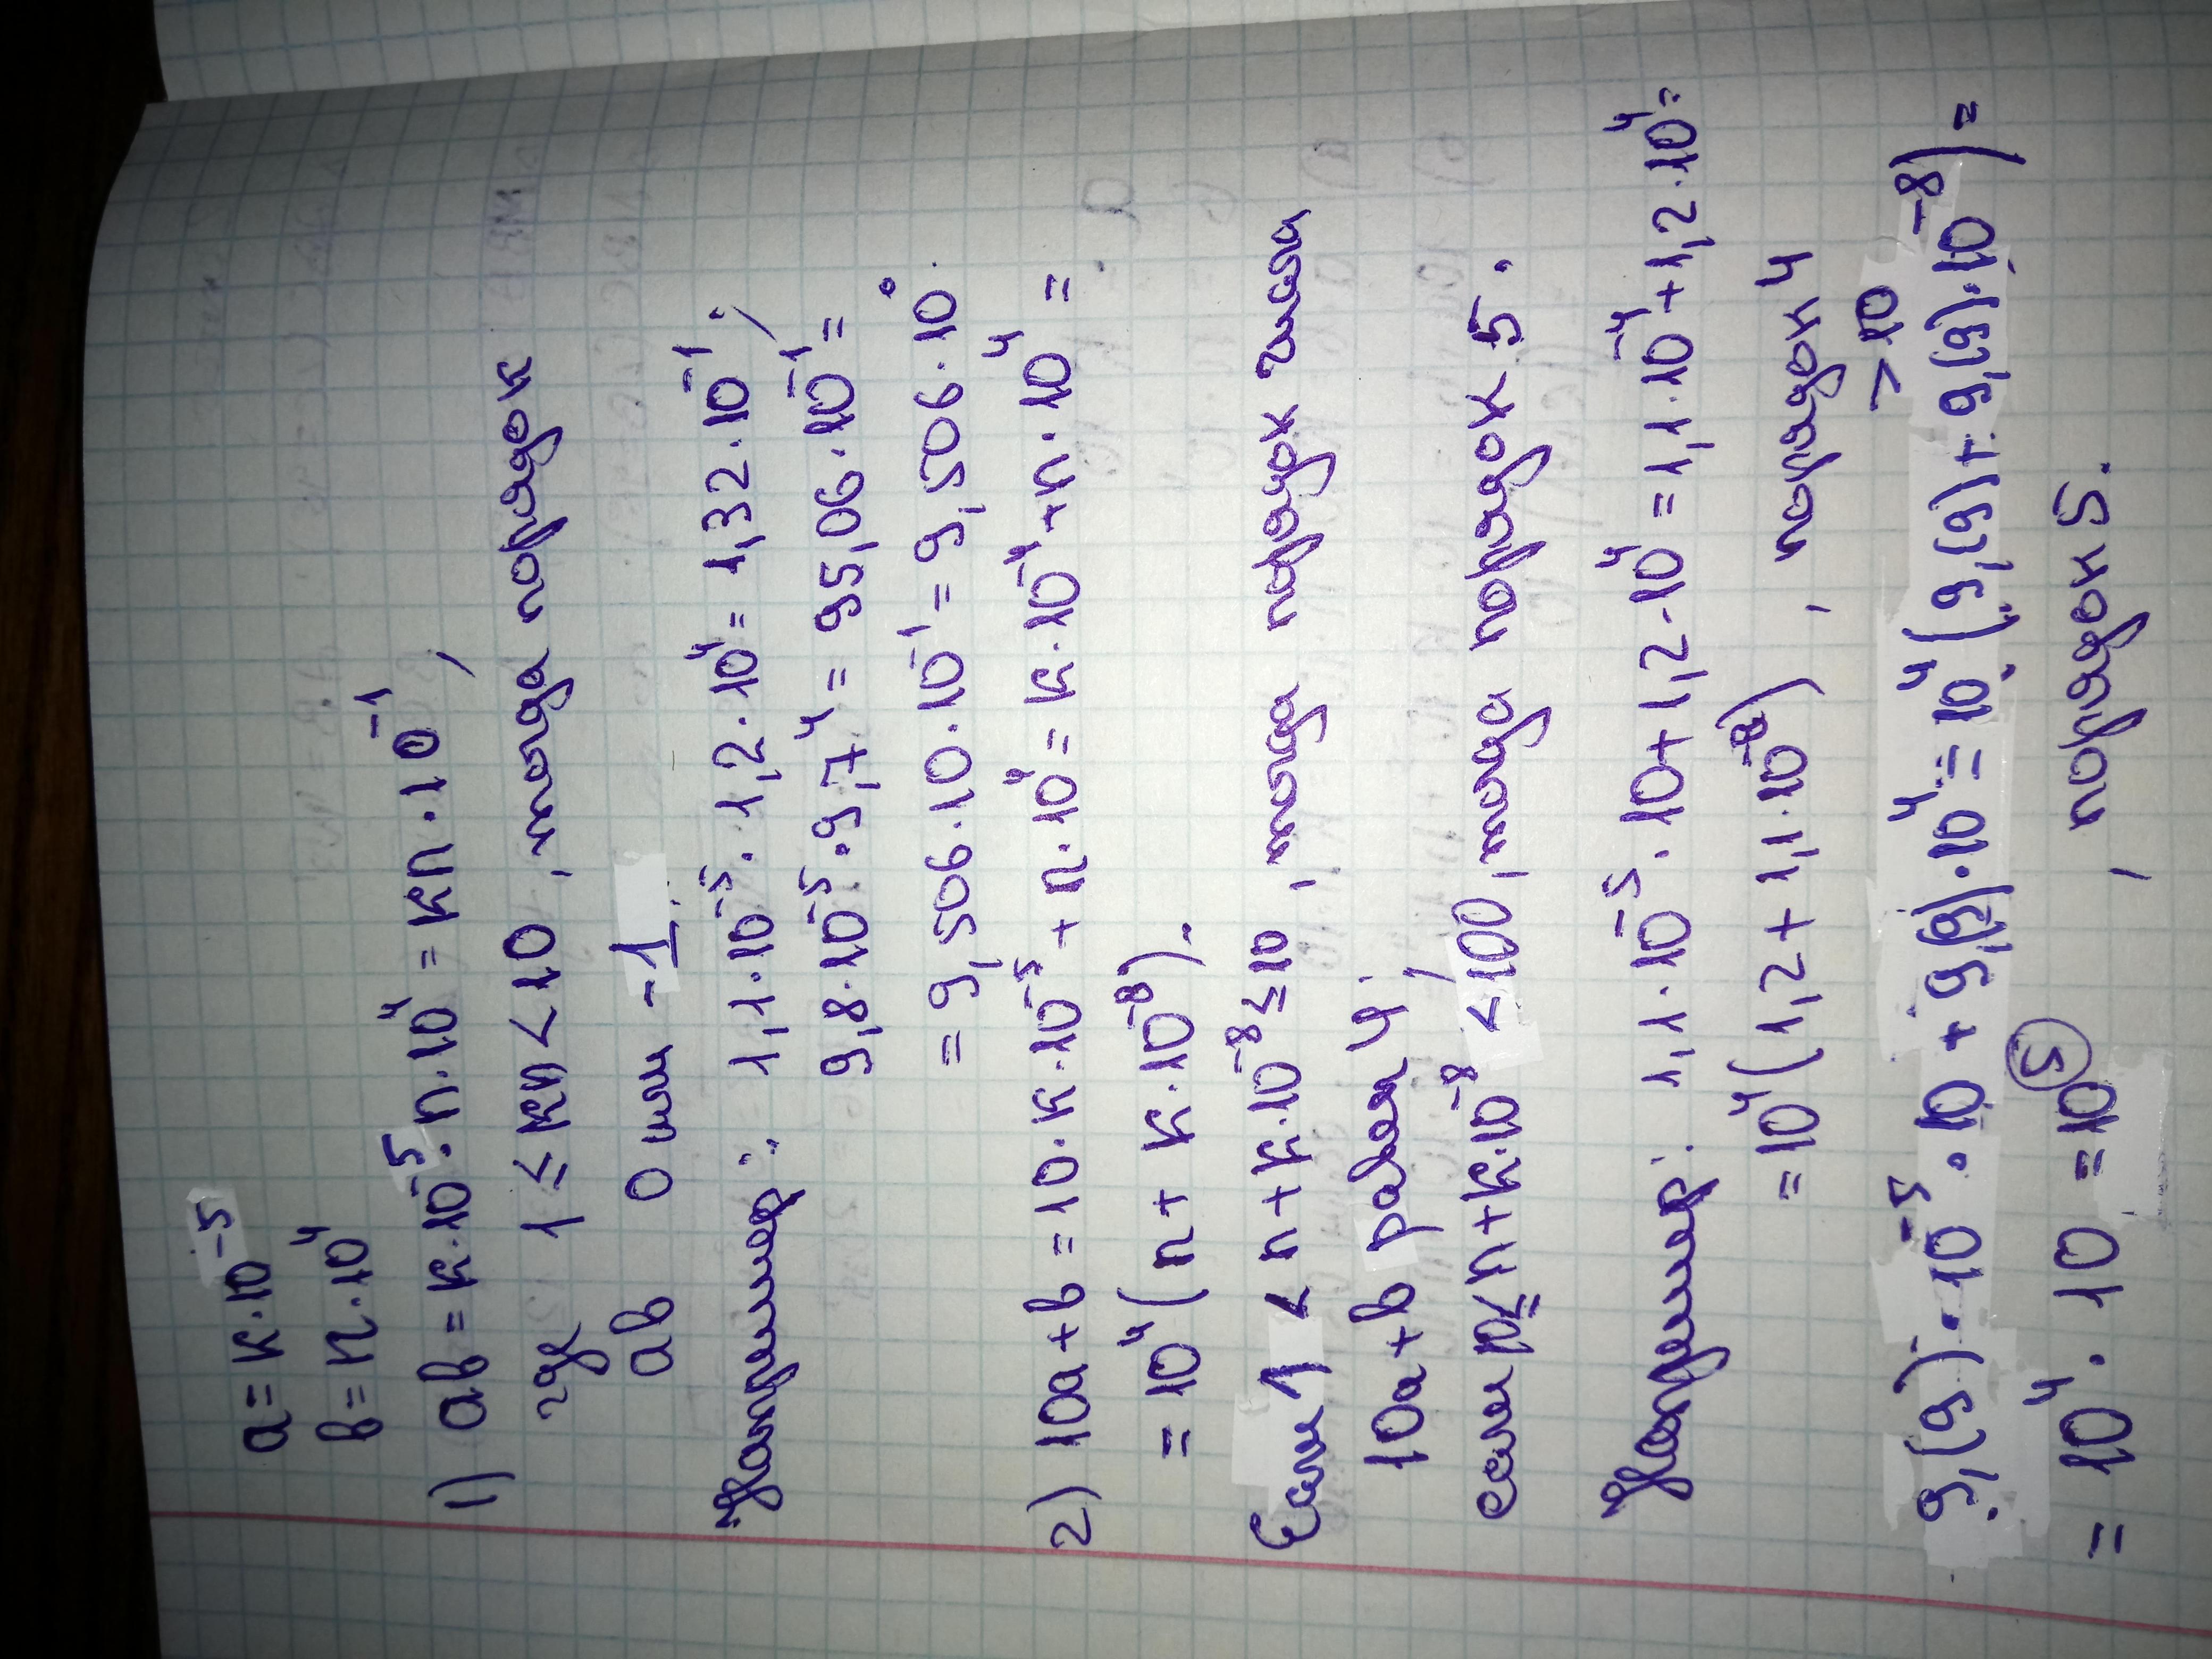 a = к·10⁻⁵
в = n·10⁴
1) ав = к·10⁻⁵·n·10⁴ = кn·10⁻¹,
где 1 ≤ кn < 10, тогда порядок
ав 0 или -1.
Например: 1,1·10⁻⁵·1,2·10⁴ = 1,32·10⁻¹;
9,8·10⁻⁵·9,7⁴ = 95,06·10⁻¹ =
= 9,506·10·10⁻¹ = 9,506·10⁰.
2) 10а+в = 10·к·10⁻⁵ + n·10⁴ = к·10⁻⁴ + n·10⁴ =
= 10⁴(n + к·10⁻⁸).
Если 1 < n+к·10⁻⁸ ≤ 10, тогда порядок числа
10а+в равен 4;
если 10 ≤ n+к·10⁻⁸ < 100, тогда порядок 5.
Например: 1,1·10⁻⁵·10 + 1,2·10⁴ = 1,1·10⁻⁴ + 1,2·10⁴ =
= 10⁴(1,2 + 1,1·10⁻⁸), порядок 4
> 10
9,(9)·10⁻⁵·10 + 9,(9)·10⁴ = 10⁴(9,(9) + 9,(9)·10⁻⁸) =
= 10⁴·10 = 10⁵, порядок 5.